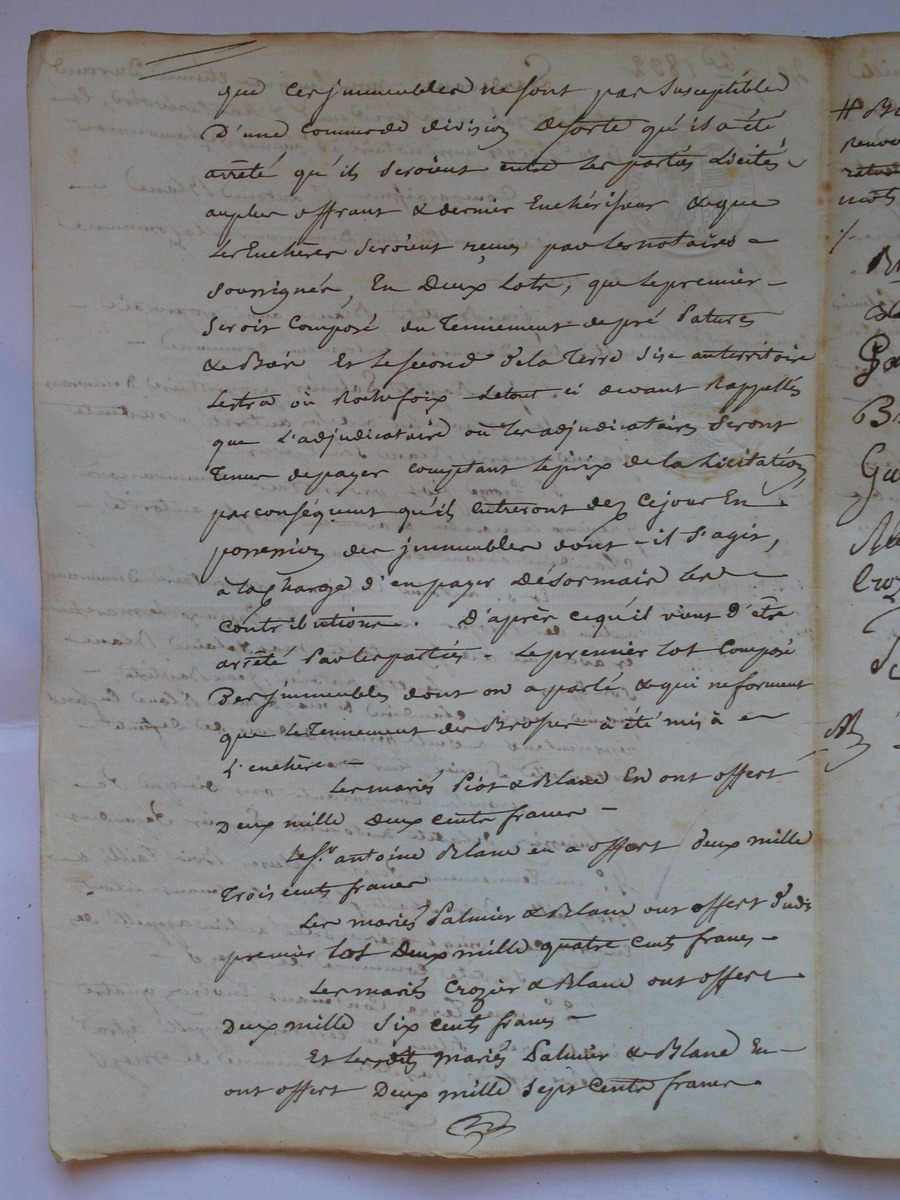 que ces jmmeubles ne sont pas susceptibles
D'une Commode division desorte qu'il a été
arrêté qu'ils seroient entre les parties Licités
au plus offrant & dernier Enchérisseur & que
Les Enchères seroient reçues par les notaires
soussignés, En Deux Lots, que le premier
seroit Composé du Tennement de pré Patures
& Bois Et le second de la Terre sise au territoire
Lestra où Rochefoix Letout ci devant Rappellés
que L'adjudicataire où les adjudicataires seront
Tenus de payer comptant le prix de la Licitation,
par conséquent qu'ils entreront dez ce jour En
possession des jmmeubles dont il s'agit,
à la charge d'en payer Désormais les
contributions. D'après ce qu'il vient d'être
arrêté Par les parties. Le premier Lot Composé
Des jmmeubles dont on a parlé & qui ne forment
que le Tennement des Brosses a été mis à
L'enchère
Les mariés Piot & Blanc En ont offert
Deux mille Deux cents francs
Le Sr. antoine Blanc en a offert Deux mille
Trois cents francs
Les mariés Palmier & Blanc ont offert dudit
premier Lot Deux mille quatre cents francs
Les mariés Crozier & Blanc ont offert
Deux mille Six cents francs
Et Lesdits mariés Palmier & Blanc En
ont offert Deux mille Sept Cents francs